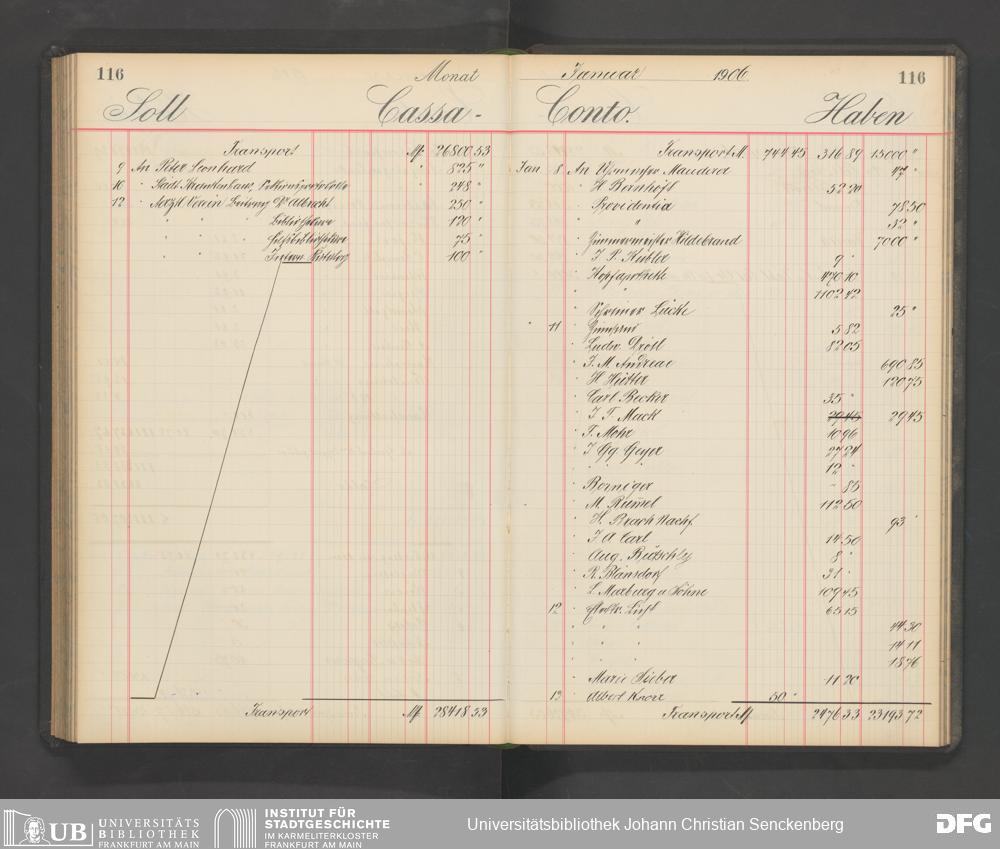 116
Monat
Soll Cassa-
Transport M 26800 53
9 An Peter Leonhard " 825 "
10 " Städt. Krankenhaus, " 248 "
12 " Aerztl. Verein Dr Albrecht " 250 "
" " " Bibliothekare " 120 "
" " " " 75 "
" " " " 100 "
Transport M 28418 53
Januar 1906
116
Conto. Haben
Transport M. 744 45 316 89 15000 "
Jan 8 An 47 "
" H Bernhöft 52 20
" Providentia 78 50
" " 32 "
" Zimmermeister Hildebrand 7000 "
" J. P. Kübler 9 "
" Hopfapotheke 470 10
" " 1102 42
" Schreiner Lück 25 "
" 11 " 5 82
" Ludw. Dröll 82 05
" J. M. Andreae 690 85
" H Hütter 120 75
" Carl Becker 35 "
" J. F. Mack 29 45 29 45
" F. Mohr 10 96
" J Gg Geyer 27 24
" " " " 12 "
" Borniger - 85
" M. Rümmel 112 50
" H. Brach Nachf. 93 "
" J A Carl 14 50
" Aug. Bütschly 8 "
" R. Blänsdorf 31 "
" L Marburg u Söhne 109 45
12 " 65 15
" " " 44 30
" " " 14 11
" " " 18 76
" Marie Sieber 11 20
13 " Albert Knorz 50 "
Transport M 2476 33 23193 72
UB UNIVERSITÄTS
BIBLIOTHEK
FRANKFURT AM MAIN
INSTITUT FÜR
STADTGESCHICHTE
IM KARMELITERKLOSTER
FRANKFURT AM MAIN
Universitätsbibliothek Johann Christian Senckenberg
DFG